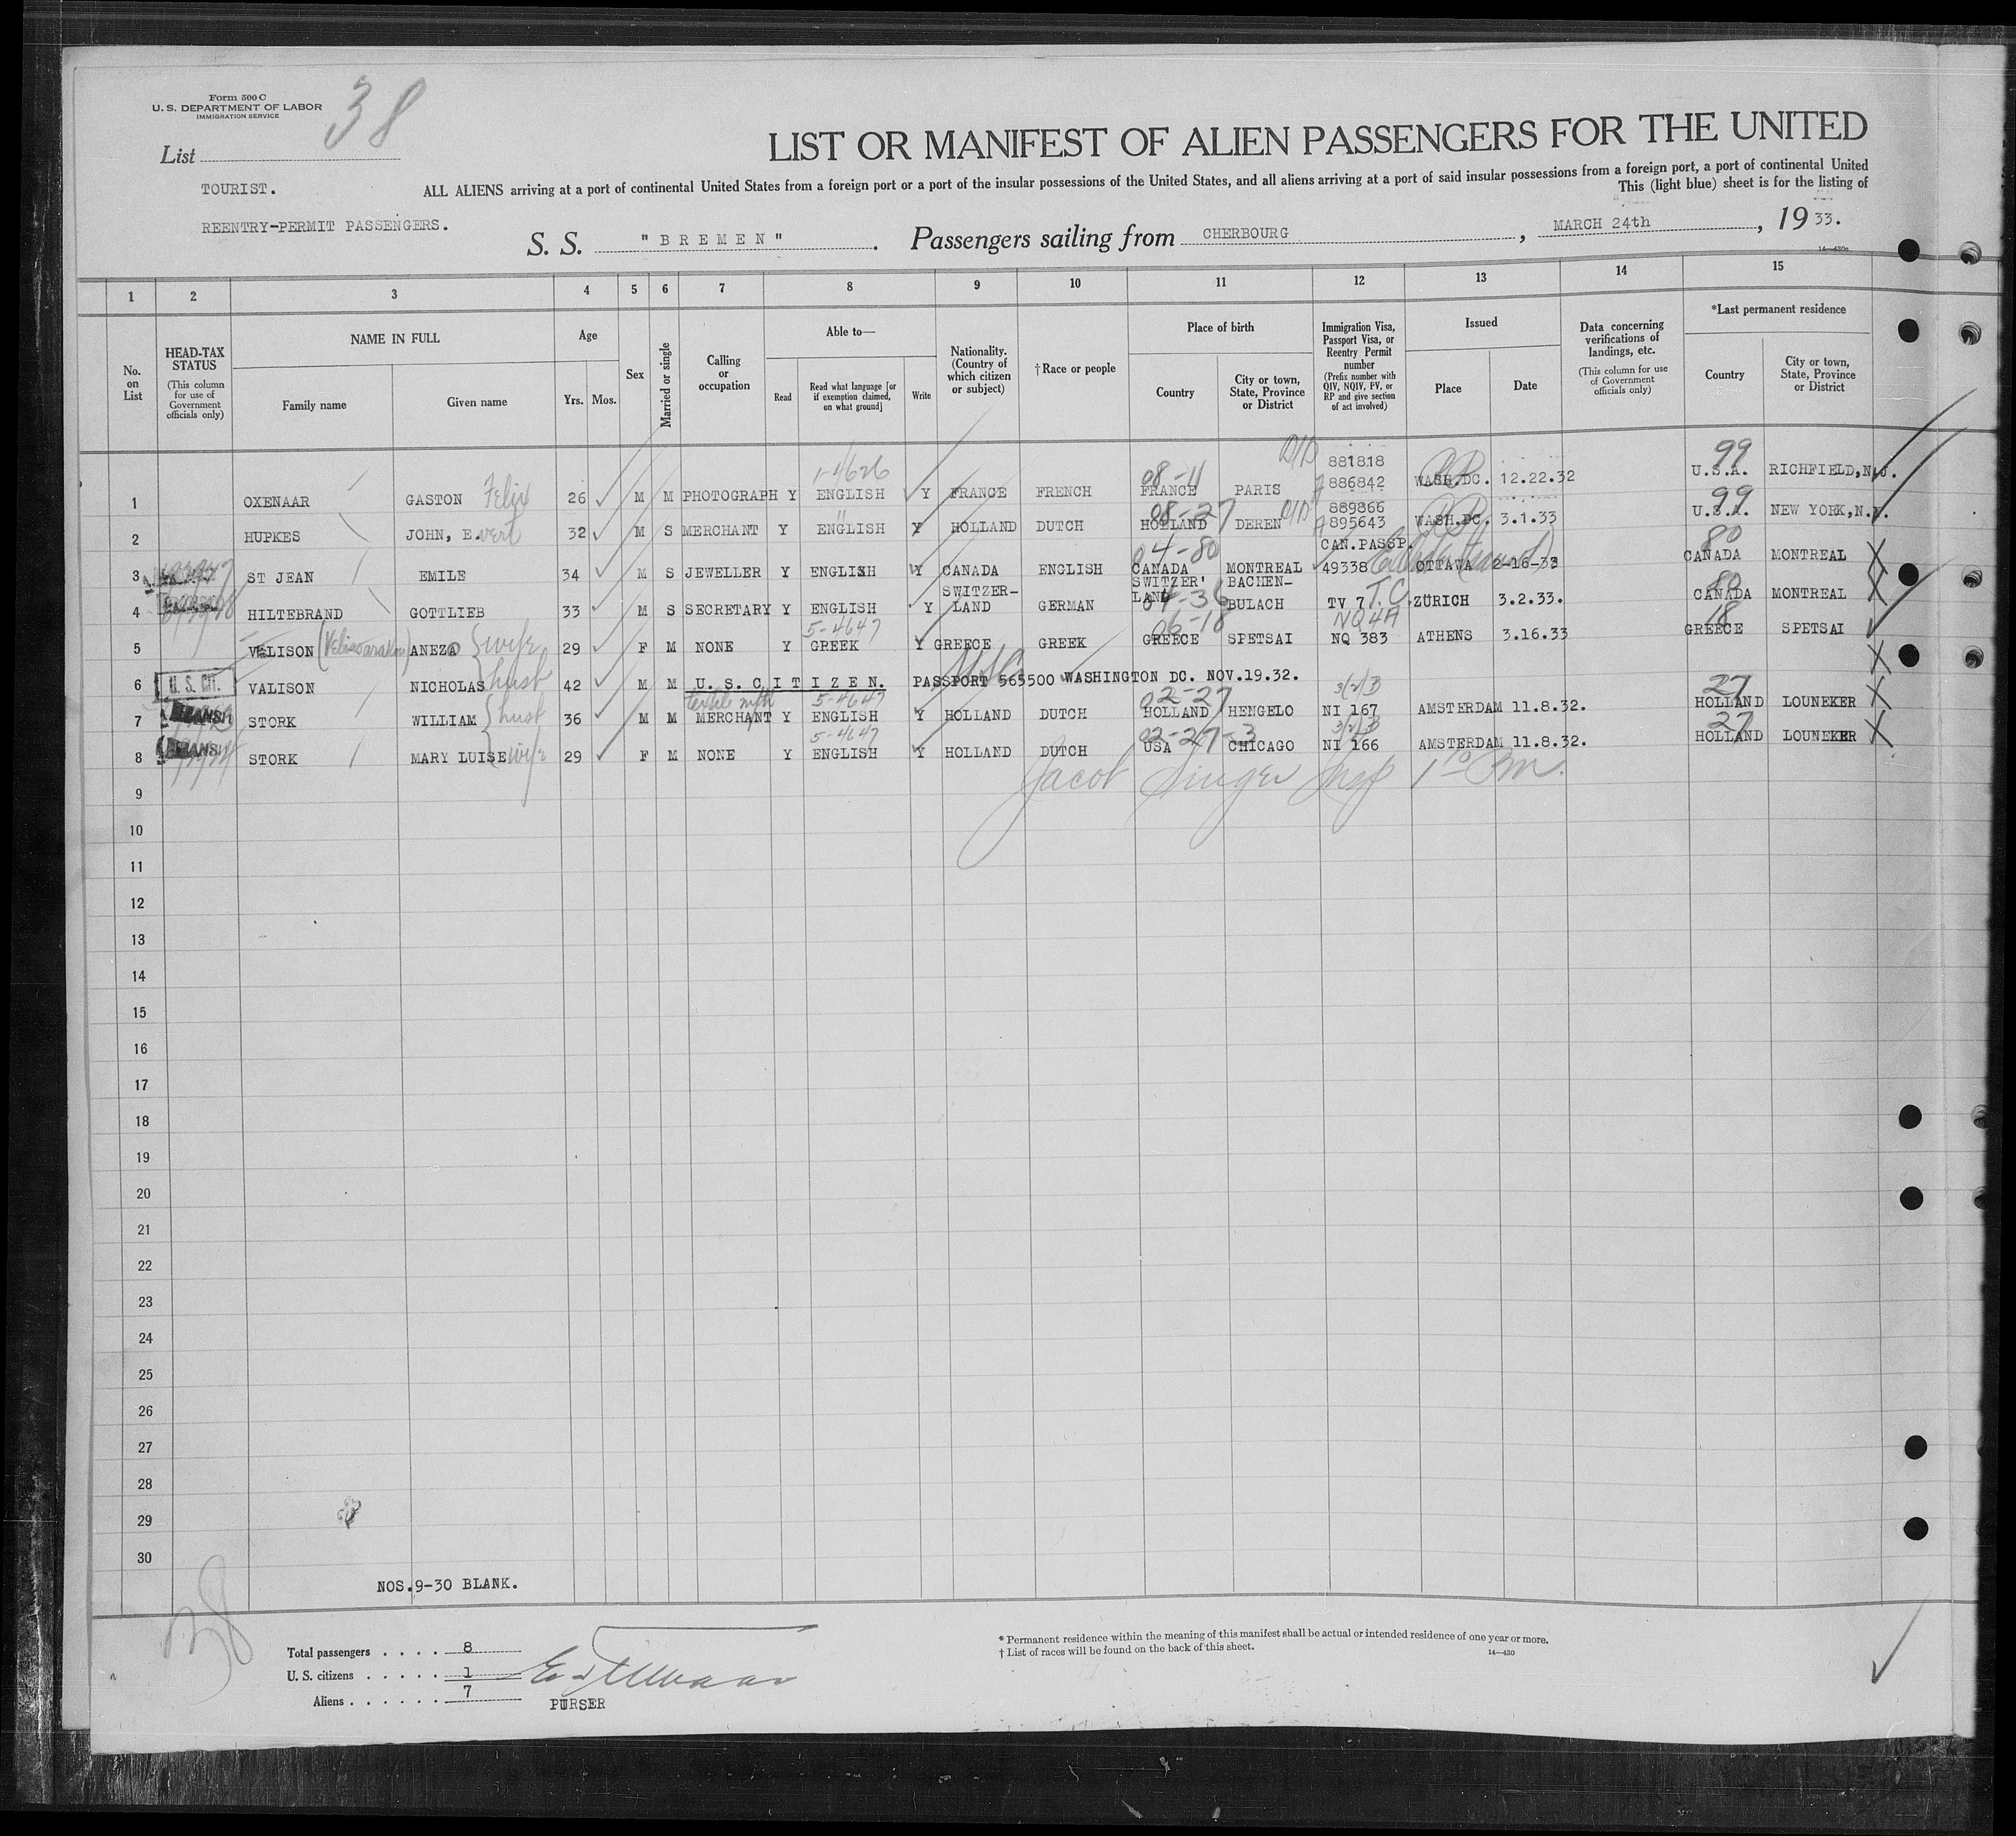 Form 500 C
U. S. DEPARTMENT OF LABOR
IMMIGRATION SERVICE
38
List
TOURIST.
REENTRY-PERMIT PASSENGERS.
LIST OR MANIFEST OF ALIEN PASSENGERS FOR THE UNITED
ALL ALIENS arriving at a port of continental United States from a foreign port or a port of the insular possessions of the United States, and all aliens arriving at a port of said insular possessions from a foreign port, a port of continental United
This (light blue) sheet is for the listing of
S. S. "BREMEN". Passengers sailing from CHERBOURG, MARCH 24th, 1933.
14—430a
1 2 3 4 5 6 7 8 9 10 11 12 13 14 15
No. on List
HEAD-TAX STATUS
(This column for use of Government officials only)
NAME IN FULL
Family name
Given name
Age
Yrs. Mos.
Sex
Married or single
Calling or occupation
Able to—
Read
Read what language [or if exemption claimed, on what ground]
Write
Nationality. (Country of which citizen or subject)
†Race or people
Place of birth
Country
City or town, State, Province or District
Immigration Visa, Passport Visa, or Reentry Permit number
(Prefix number with QIV, NQIV, PV, or RP and give section of act involved)
Issued
Place
Date
Data concerning verifications of landings, etc.
(This column for use of Government officials only)
*Last permanent residence
Country
City or town, State, Province or District
1-4626 08-11 881818 99
1 OXENAAR GASTON Felix 26 M M PHOTOGRAPH Y ENGLISH Y FRANCE FRENCH FRANCE PARIS 886842 WASH.DC. 12.22.32 U.S.A. RICHFIELD,N.J.
" 08-27 889866 99
2 HUPKES JOHN, E.vert 32 M S MERCHANT Y ENGLISH Y HOLLAND DUTCH HOLLAND DEREN 895643 WASH.DC. 3.1.33 U.S.A. NEW YORK,N.Y.
04-80 CAN.PASSP. 80
3 ST JEAN EMILE 34 M S JEWELLER Y ENGLISH Y CANADA ENGLISH CANADA MONTREAL 49338 OTTAVA 2-16-33 CANADA MONTREAL
SWITZER- SWITZER' LAND BACHEN- 04-36 T.C. 80
4 HILTEBRAND GOTTLIEB 33 M S SECRETARY Y ENGLISH Y LAND GERMAN BULACH TV 7 ZÜRICH 3.2.33. CANADA MONTREAL
5-4647 06-18 NQ4A 18
5 VELISON ANEZA wife 29 F M NONE Y GREEK Y GREECE GREEK GREECE SPETSAI NQ 383 ATHENS 3.16.33 GREECE SPETSAI
6 U. S. CIT. VALISON NICHOLAS husb 42 M M U. S. C I T I Z E N. PASSPORT 565500 WASHINGTON DC. NOV.19.32.
5-4647 02-27 3(2)B 27
7 STORK WILLIAM husb 36 M M MERCHANT Y ENGLISH Y HOLLAND DUTCH HOLLAND HENGELO NI 167 AMSTERDAM 11.8.32. HOLLAND LOUNEKER
5-4647 02-27-3 3(2)B 27
8 STORK MARY LUISE wife 29 F M NONE Y ENGLISH Y HOLLAND DUTCH USA CHICAGO NI 166 AMSTERDAM 11.8.32. HOLLAND LOUNEKER
Jacob Singer Insp
9
10
11
12
13
14
15
16
17
18
19
20
21
22
23
24
25
26
27
28
29
30
NOS.9-30 BLANK.
38
Total passengers . . . . 8
U. S. citizens . . . . . 1
Aliens . . . . . . 7
PURSER
* Permanent residence within the meaning of this manifest shall be actual or intended residence of one year or more.
† List of races will be found on the back of this sheet.
14—430